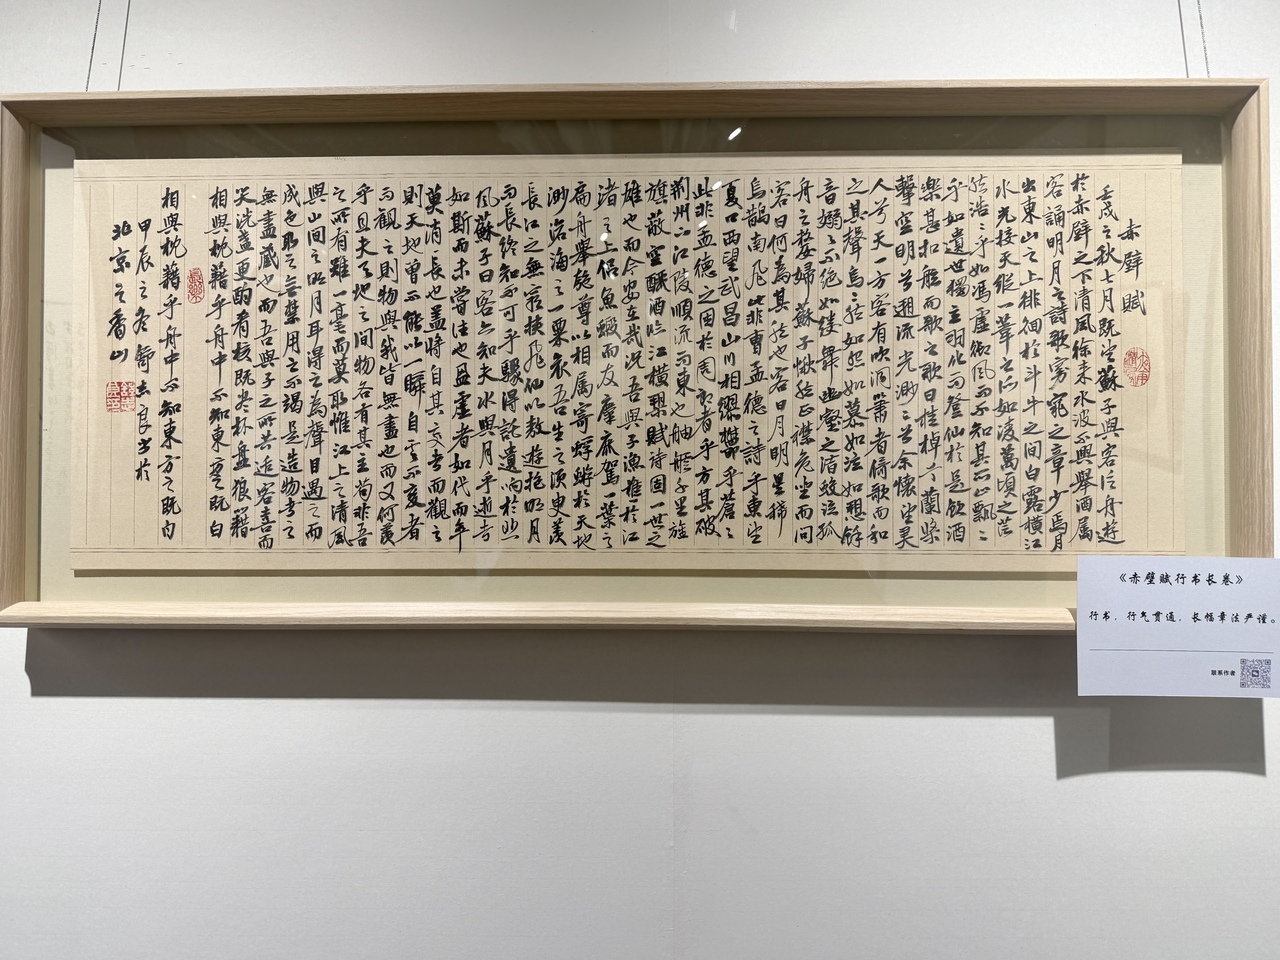 赤壁賦
壬戌之秋七月既望蘇子與客泛舟遊
於赤壁之下清風徐来水波不興舉酒属
客誦明月之詩歌窈窕之章少焉月
出東山之上徘徊於斗牛之間白露横江
水光接天縱一葦之所如凌萬頃之茫
然浩ミ乎如馮虚御風而不知其所止飄ミ
乎如遺世獨立羽化而登仙於是飲酒
樂甚扣舷而歌之歌曰桂棹兮蘭槳
擊空明兮溯流光渺ミ兮余懷望美
人兮天一方客有吹洞簫者倚歌而和
之其聲烏ミ然如怨如慕如泣如愬餘
音嫋ミ不絕如縷舞幽壑之潛蛟泣孤
舟之嫠婦蘇子愀然正襟危坐而問
客曰何為其然也客曰月明星稀
烏鵲南飛此非曹孟德之詩乎東望
夏口西望武昌山川相繆鬱乎蒼ミ
此非孟德之困於周郎者乎方其破
荆州下江陵順流而東也舳艫千里旌
旗蔽空釃酒臨江横槊賦詩固一世之
雄也而今安在哉況吾與子漁樵於江
渚之上侣魚蝦而友麋鹿駕一葉之
扁舟舉匏尊以相属寄蜉蝣於天地
渺滄海之一粟哀吾生之須臾羨
長江之無窮挾飛仙以敖遊抱明月
而長終知不可乎驟得託遺响於悲
風蘇子曰客亦知夫水與月乎逝者
如斯而未嘗往也盈虚者如代而卒
莫消長也蓋將自其变者而觀之
則天地曾不能以一瞬自其不变者
而觀之則物與我皆無盡也而又何羨
乎且夫天地之間物各有其主苟非吾
之所有雖一毫而莫取惟江上之清風
與山間之明月耳得之為聲目遇之而
成色取之無禁用之不竭是造物者之
無盡藏也而吾與子之所共适客喜而
笑洗盞更酌肴核既尽杯盤狼藉
相與枕藉乎舟中不知東方之既白
相與枕藉乎舟中不知東方之既白
甲辰之冬薛志良书於
北京之香山
《赤壁赋行书长卷》
行书，行气贯通，长幅章法严谨。
联系作者